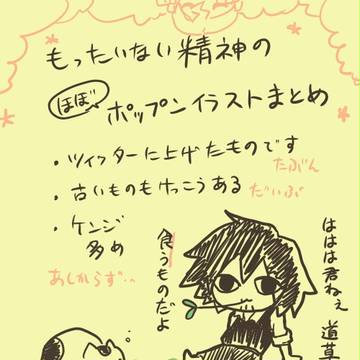 もったいない精神の
ほぼ、ポップンイラストまとめ
・ツイッターに上げたものです
たぶん
・古いものもけっこうある
だいぶ
・ケンジ
多め
あしからず・・
ははは君ねぇ 道草
食うものだよ